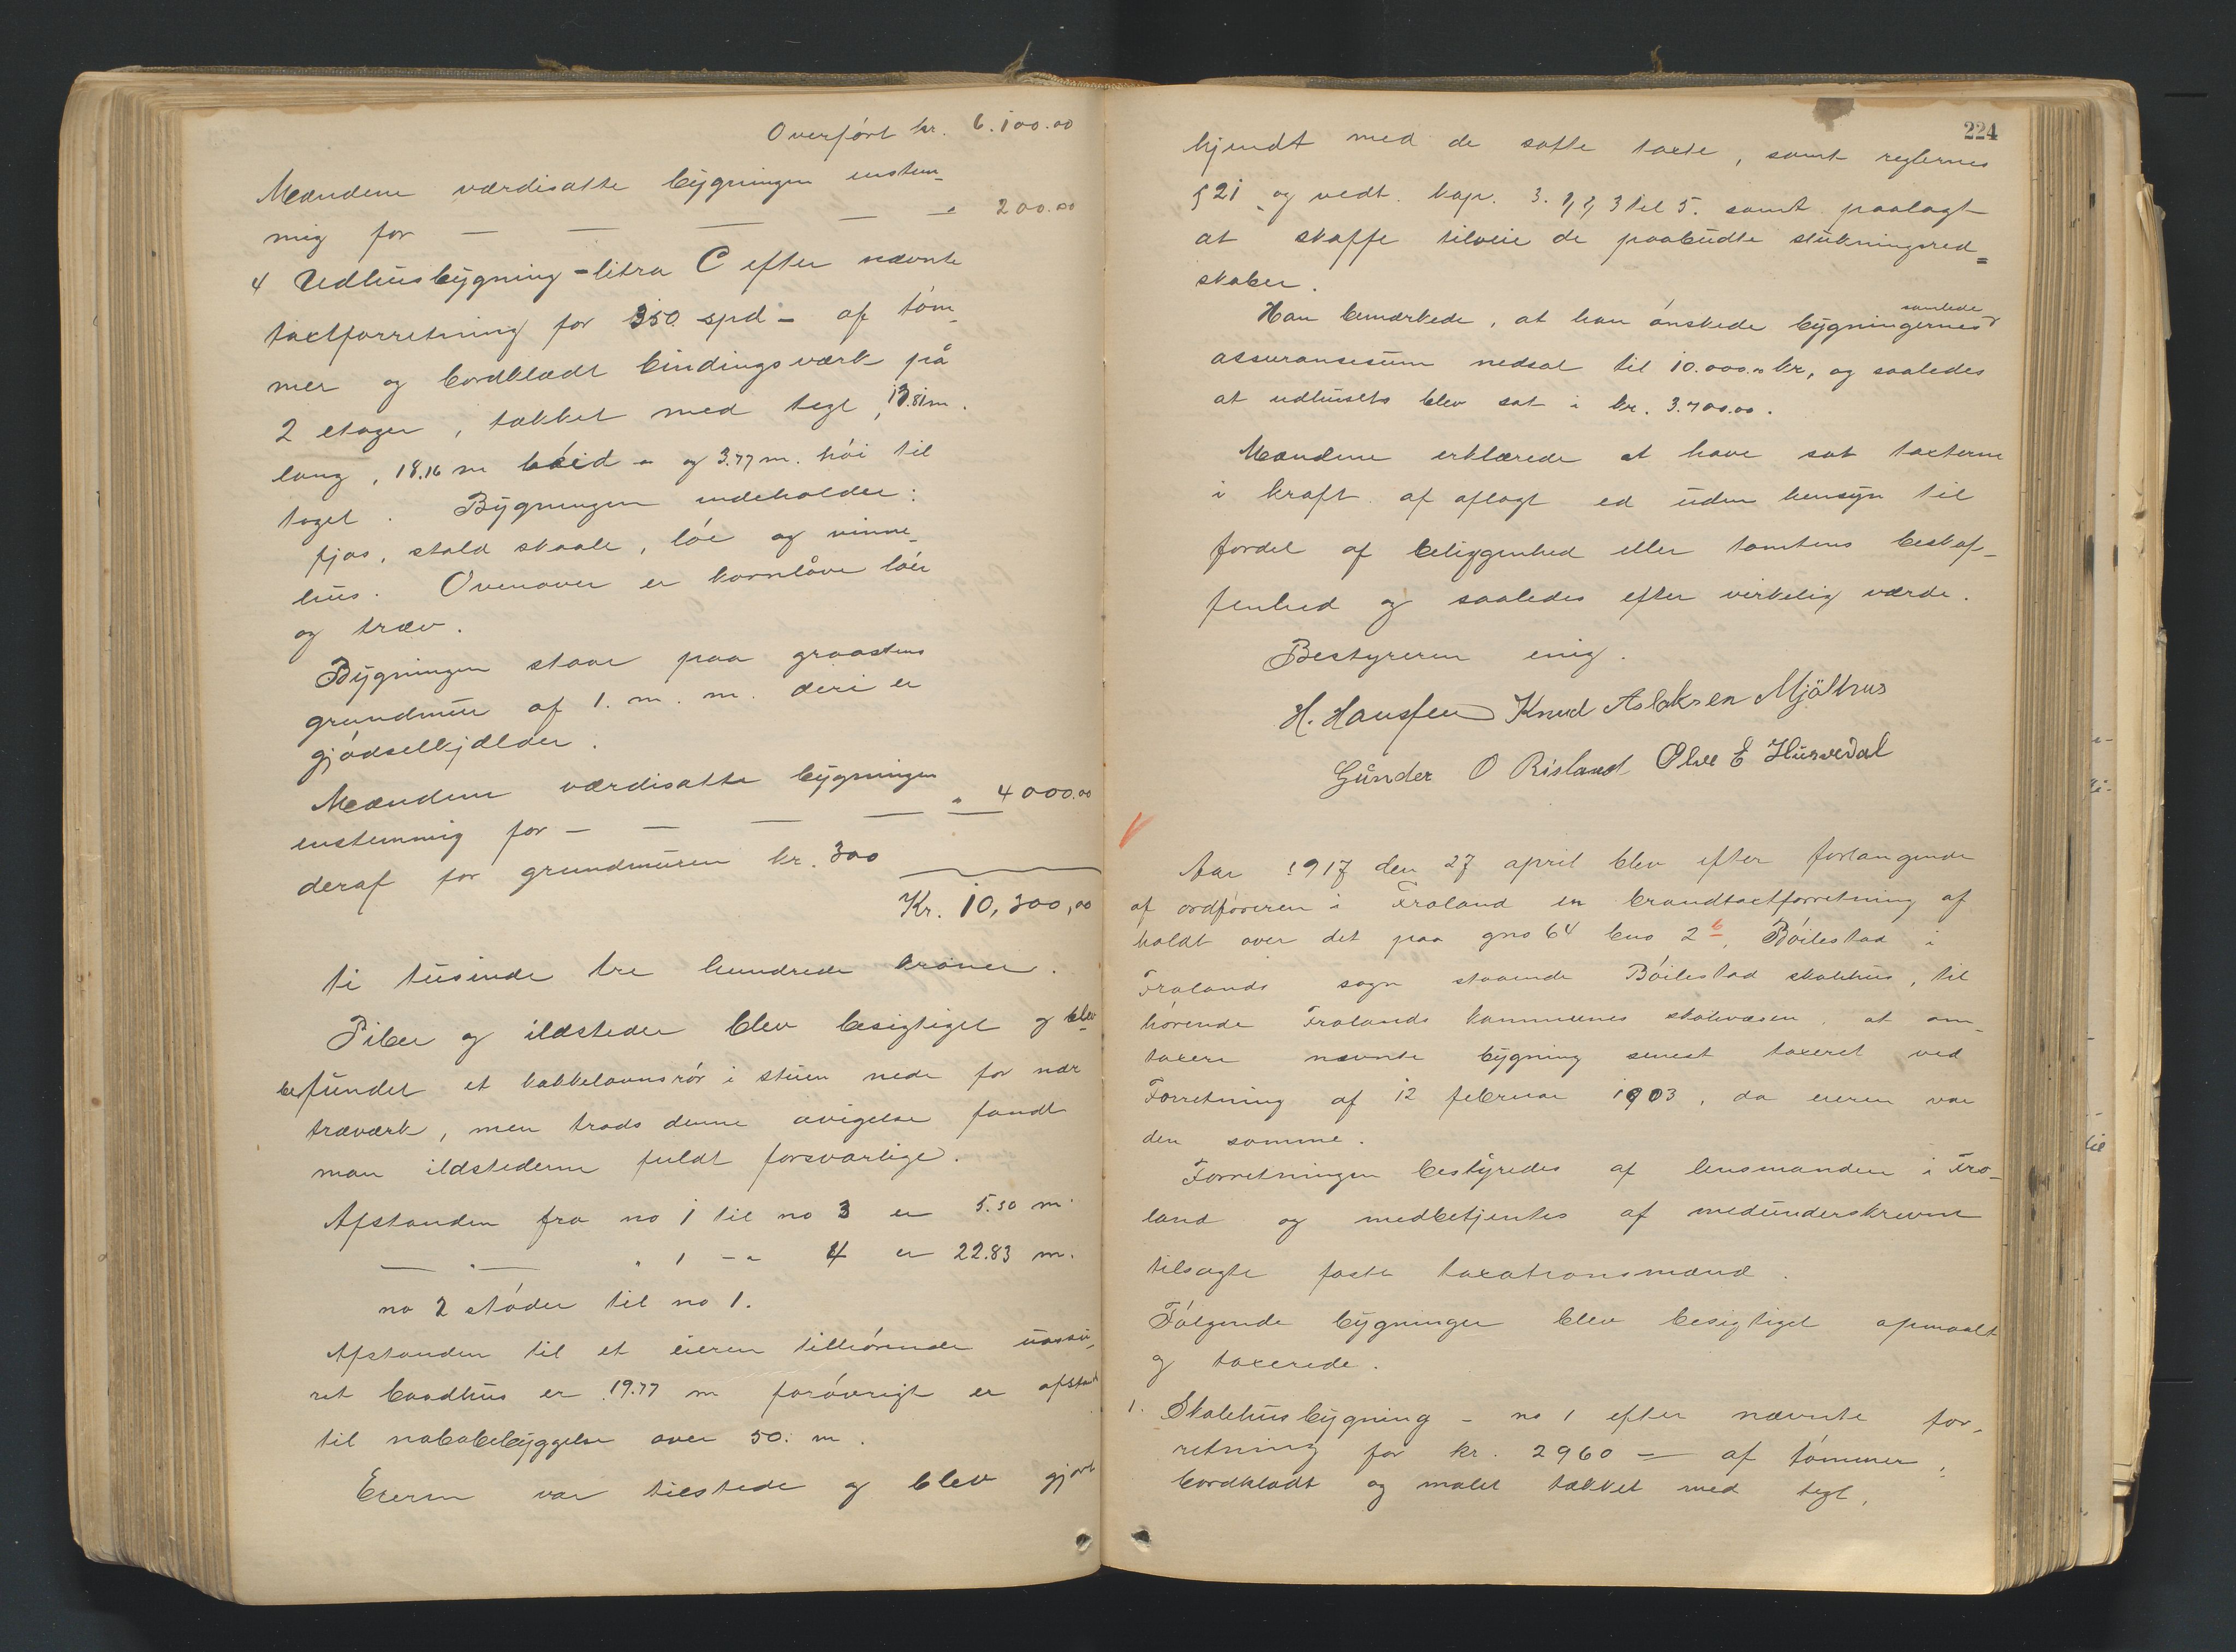 Overført kr. 6.100.00
Mændene værdisatte bygningen enstem-
mig for — — — — " 200.00
4 Udhusbygning - litra C efter nævnte
taxtforretning for 350 spd - af tøm-
mer og bordklædt bindingsværk på
2 etager, tækket med tegl, 13.81 m.
lang, 18.16 m breid - og 3.77 m. høi til
taget. Bygningen indeholder:
fjøs, stald skaale, løe og vinne-
hus. Ovenover er kornlåve løer
og træv.
Bygningen staar paa graastens
grundmur af 1. m. m. deri er
gjødselkjælder.
Mændene værdisatte bygningen
enstemmig for — — — — " 4000.00
deraf for grundmuren kr. 300
Kr. 10,300,00
ti tusinde tre hundrede kroner.
Piber og ildsteder blev besigtiget og blev
befundet et kakkelovnsrør i stuen nede for nær
træværk, men trods denne avigelse fandt
man ildstederne fuldt forsvarlige.
Afstanden fra no 1 til no 3 er 5.50 m.
— " — " 1 - " 4 er 22.83 m.
no 2 støder til no 1.
Afstanden til et eieren tilhørende uassu-
ret baadhus er 19.77 m forøvrigt er afstand
til nabobebyggelse over 50. m.
Eieren var tilstede og blev gjort
224
kjendt med de satte taxte, samt reglernes
§ 21 og vedt. kap. 3. 1, 2, 3 til 5. samt paalagt
at skaffe tilveie de paabudte slukningsred=
skaber.
Han bemærkede, at han ønskede bygningernes samlede
assuransesum nedsat til 10.000.00 kr, og saaledes
at udhusets blev sat i kr. 3.700.00.
Mændene erklærede at have sat taxterne
i kraft af aflagt ed uden hensyn til
fordel af beliggenhed eller tomtens beskaf-
fenhed og saaledes efter virkelig værde.
Bestyreren enig.
H. Hansfen Knud Aslaksen Mjölhus
Gunder O Risland Olve E Husvedal
Aar 1917 den 27 april blev efter forlangende
af ordføreren i Froland en brandtaxtforretning af
holdt over det paa gno 64 bno 2 6, Bøilestad i
Frolands sogn staaende Bøilestad skolehus, til
hørende Frolands kommunes skolevæsen, at om-
taxere nævnte bygning senest taxeret ved
Forretning af 12 februar 1903, da eieren var
den samme.
Forretningen bestyredes af lensmanden i Fro-
land og medbetjentes af medunderskrevne
tilsagte faste taxationsmænd.
Følgende bygninger blev besigtiget opmaalt
og taxerede.
1. Skolehusbygning - no 1 efter nævnte for-
retning for kr. 2960 — af tømmer,
bordklædt og malet tækket med tegl,